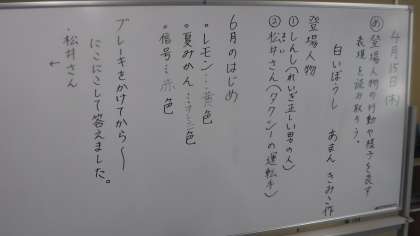 4月15日(木)
め 登場人物の行動や様子を表す
表現を読み取ろう。
白いぼうし あまんきみこ作
登場人物
①しんし(れいぎ正しい男の人)
②松井さん(タクシーの運転手)
まつい
6月のはじめ
・レモン…黄色
・夏みかん…オレンジ色
・信号…赤色
ブレーキをかけてから〜
にこにこして答えました。
・松井さん
←